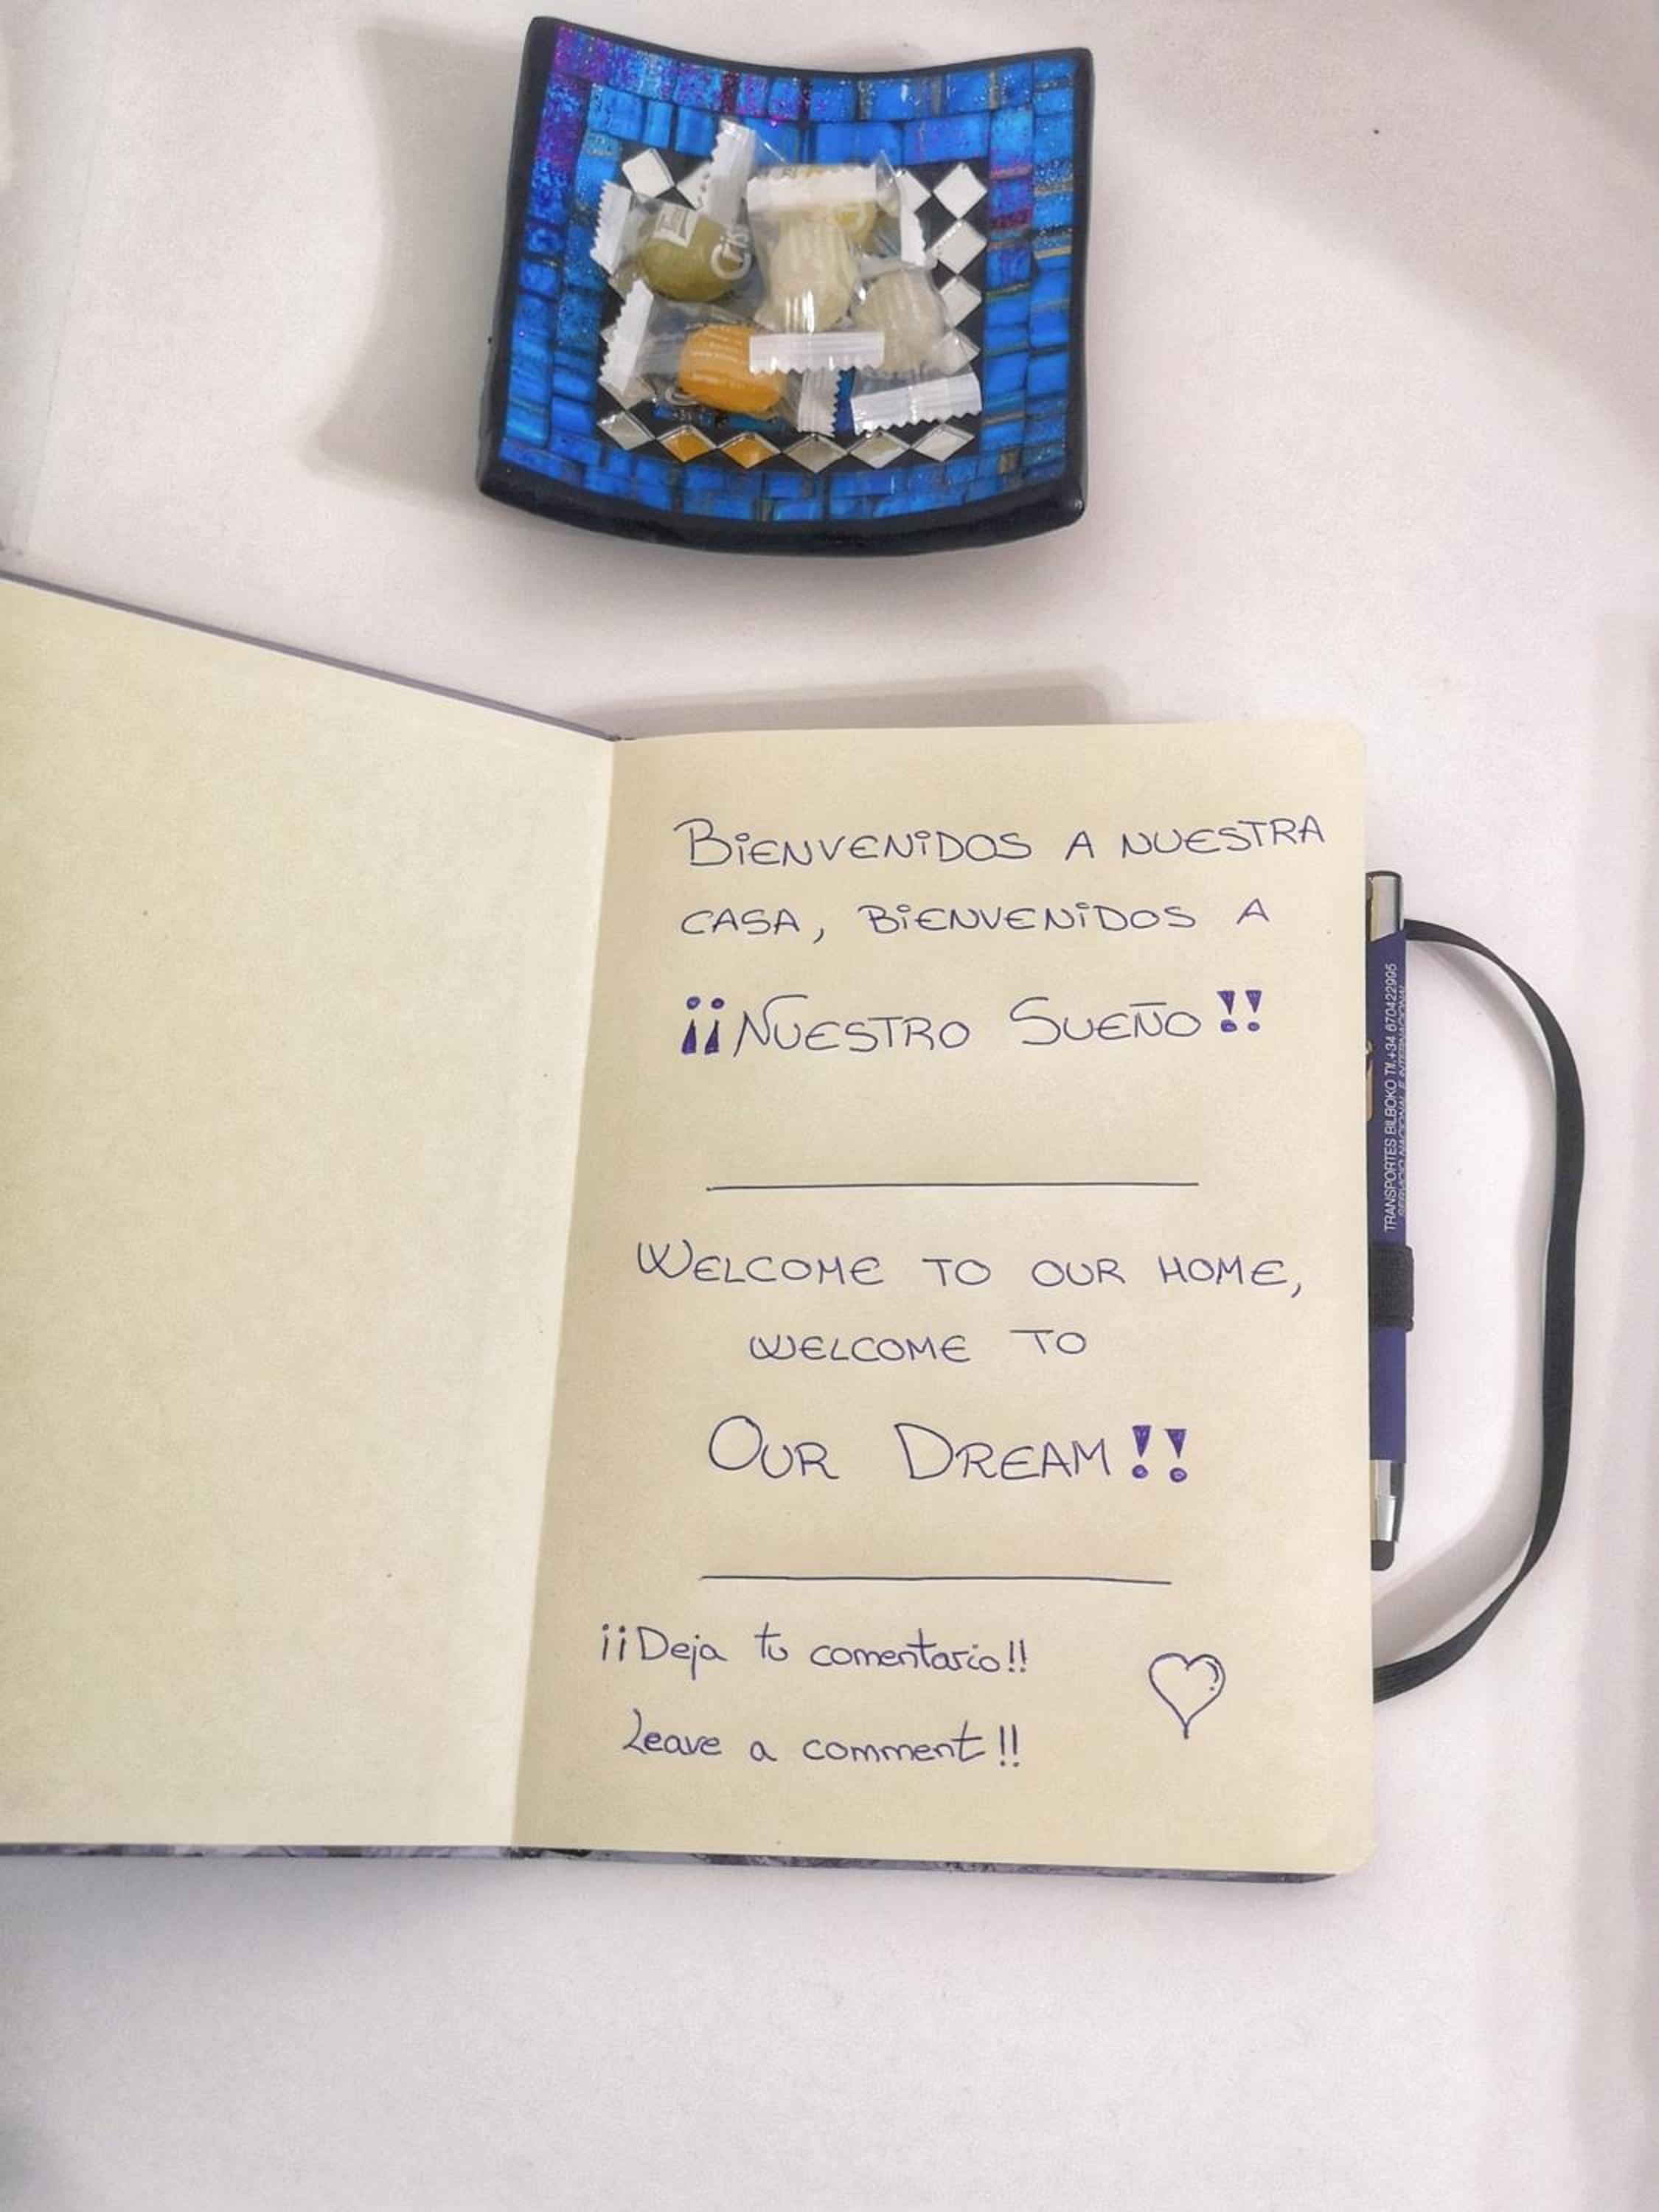 BIENVENIDOS A NUESTRA
CASA, BIENVENIDOS A
¡¡NUESTRO SUEÑO!!
WELCOME TO OUR HOME,
WELCOME TO
OUR DREAM!!
¡¡Deja tu comentario!!
Leave a comment!!
TRANSPORTES BILBOKO Tlf.+34 670422995
SERVICIO NACIONAL E INTERNACIONAL